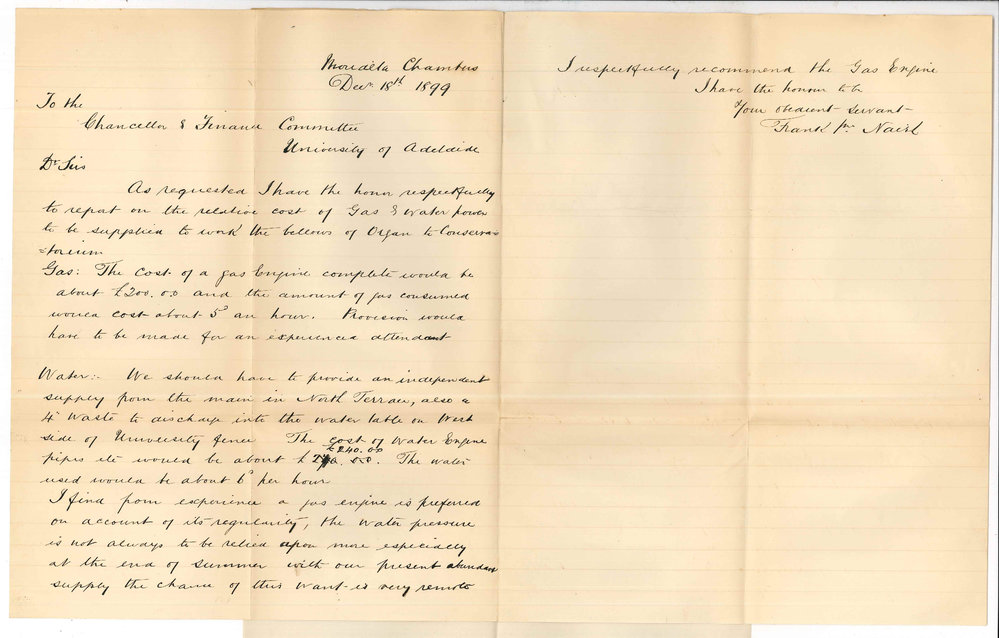 Morialta Chambers
Decr 18th 1899
To the
Chancellor & Finance Committee
University of Adelaide
Dr Sirs
As requested I have the honor respectfully
to report on the relative cost of Gas & Water power
to be supplied to work the bellows of Organ to Conserva=
=torium
Gas: The cost of a gas Engine complete would be
about £200.0.0 and the amount of gas consumed
would cost about 5d an hour. Provision would
have to be made for an experienced attendant
Water:- We should have to provide an independent
supply from the main in North Terrace, also a
4" waste to discharge into the water table on West
side of University fence The cost of Water Engine
£240.0.0
pipes etc would be about £ 0.0. The water
used would be about 6d per hour
I find from experience a gas engine is preferred
on account of its regularity, the water pressure
is not always to be relied upon more especially
at the end of summer with our present abundant
supply the chance of this want is very remote
I respectfully recommend the Gas Engine
I have the honour to be
Your obedient servant
Frank Naish